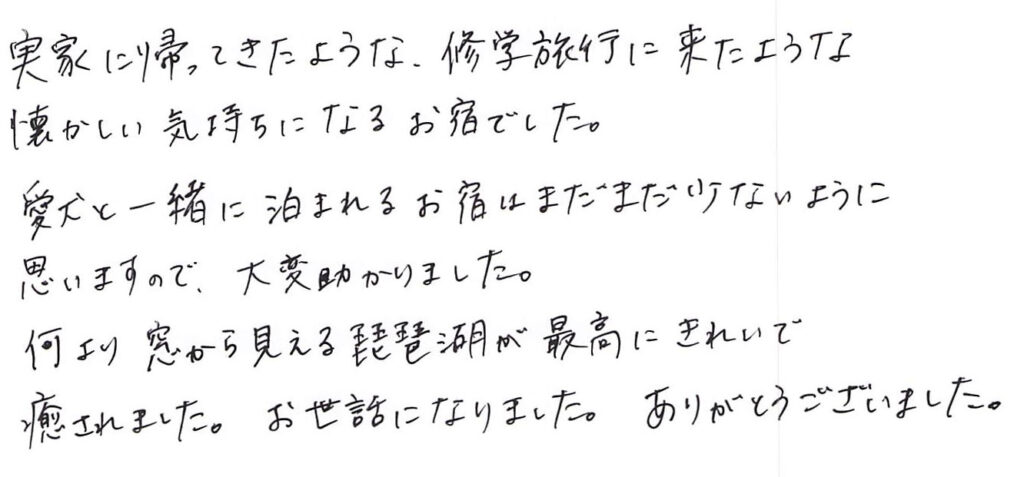 実家に帰ってきたような、修学旅行に来たような
懐かしい気持ちになるお宿でした。
愛犬と一緒に泊まれるお宿はまだまだ少ないように
思いますので、大変助かりました。
何より窓から見える琵琶湖が最高にきれいで
癒されました。お世話になりました。ありがとうございました。